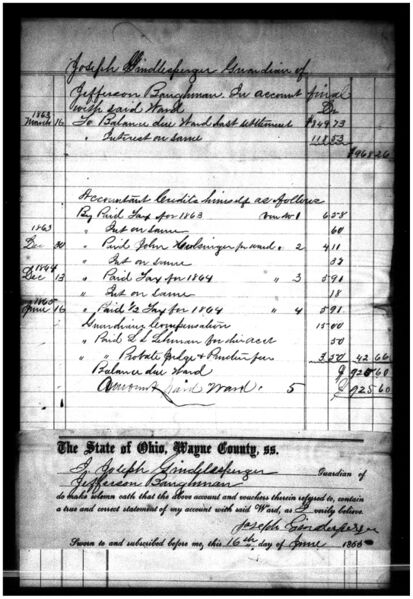 Joseph Gindlesperger Guardian of
Jefferson Baughman In account final
with said Ward Dr
1863
March 16 To Balance due Ward last settlement $849.73
" Interest on same 118.53
$968.26
Accountant Credits himself as follows
By Paid Tax for 1863 voucher 1 6.58
1863 " Int on same 60
Dec 30 " Paid John for ward " 2 4.11
" Int on same
1864
Dec 13 " Paid Tax for 1864 " 3 5.91
" Int on same 18
1865
June 16 " Paid 1/2 Tax for 1864 " 4 5.91
" Guardians Compensation 15.00
" Paid L S Lehman for 50
" " Probate Judge & Printer fee 3.50 42.66
Balance due Ward $925.60
Amount Paid Ward. 5 $925.60
The State of Ohio, Wayne County, ss.
I, Joseph Gindlesperger Guardian of
Jefferson Baughman
do make solemn oath that the above account and vouchers therein refered to, contain
a true and correct statement of my account with said Ward, as I verily believe.
Joseph Ginderperger
Sworn to and subscribed before me, this 16th day of June 1865